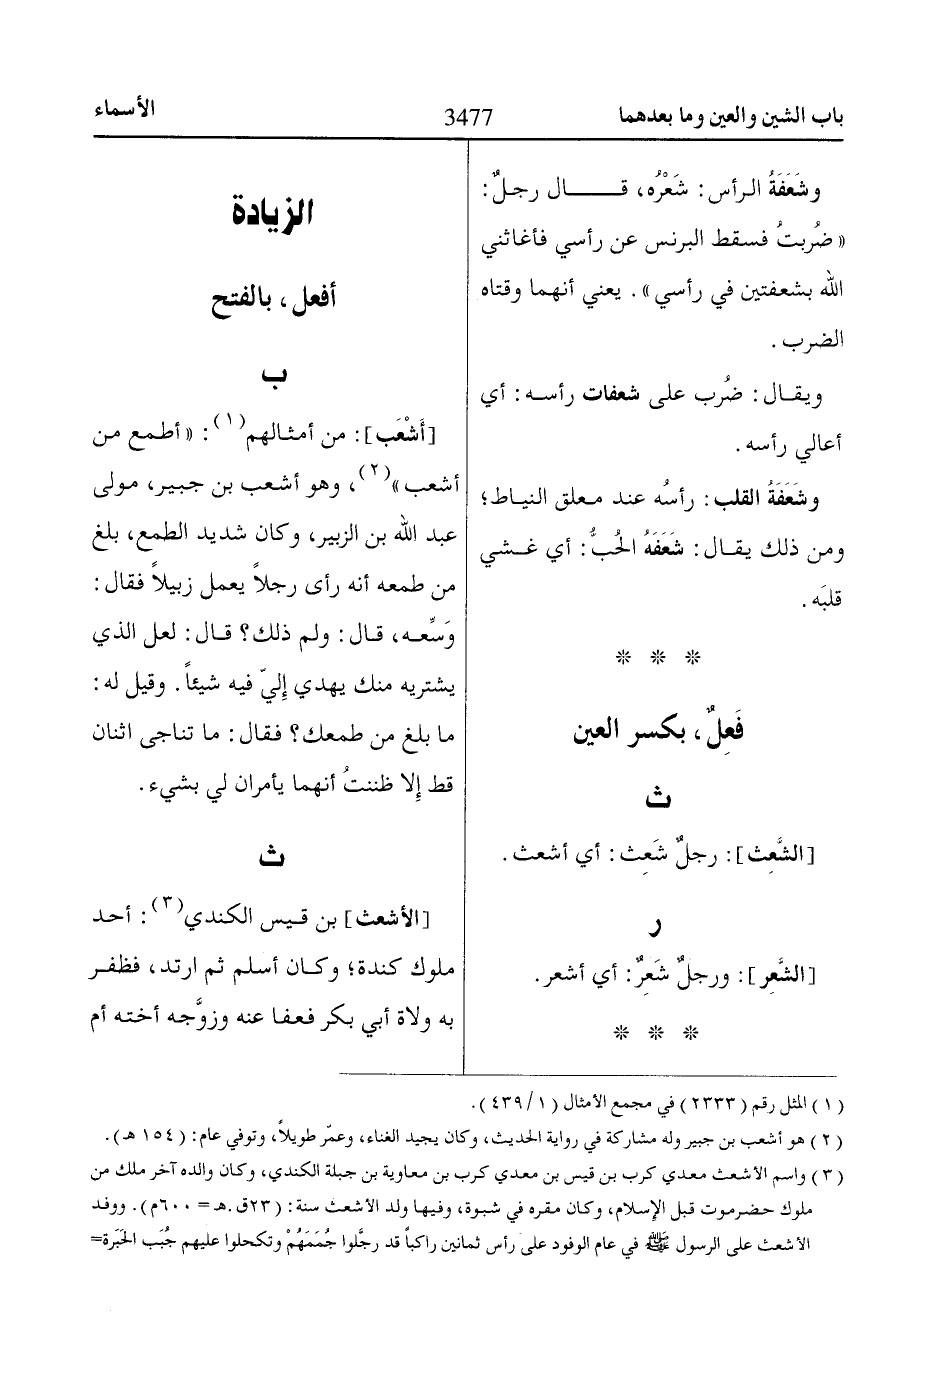 باب الشين والعين وما بعدهما
3477
الأسماء
وشَعَفَةُ الرأس: شَعْرُه، قـــال رجلٌ:
«ضُربتُ فسقط البرنس عن رأسي فأغاثني
الله بشعفتين في رأسي». يعني أنهما وقتاه
الضرب.
ويقـال: ضُرب على شعفات رأسـه: أي
أعالي رأسه.
وشَعَفَةُ القلب: رأسُه عند معلق النياط؛
ومن ذلك يقـال: شَعَفَهُ الحُبُّ: أي غـشي
قلبَه.
* * *
فَعِلٌ، بكسر العين
ث
[الشَّعِث]: رجلٌ شَعِث: أي أشعث.
ر
[الشَّعِر]: ورجلٌ شَعِرٌ: أي أشعر.
* * *
الزيادة
أفعل، بالفتح
ب
[أَشْعَب]: من أمثـالهم(١): «أطمع من
أشعب»(٢)، وهو أشعب بن جبير، مـولى
عبد الله بن الزبير، وكان شديد الطمع، بلغ
من طمعه أنه رأى رجلاً يعمل زبيلاً فقال:
وَسِّعـه، قـال: ولم ذلك؟ قـال: لعل الذي
يشتريه منك يهدي إِليّ فيه شيئاً. وقيل له:
ما بلغ من طمعك؟ فقال: ما تناجى اثنان
قط إِلا ظننتُ أنهما يأمران لي بشيء.
ث
[الأشعث] بن قـيس الكندي(٣): أحـد
ملوك كندة؛ وكـان أسلم ثم ارتد، فظفـر
به ولاة أبي بكر فعفا عنه وزوَّجه أختـه أم
(١) المثل رقم (٢٣٣٣) في مجمع الأمثال (١/ ٤٣٩).
(٢) هو أشعب بن جبير وله مشاركة في رواية الحديث، وكان يجيد الغناء، وعمّر طويلاً، وتوفي عام: (١٥٤ هـ).
(٣) واسم الأشعث معدي كرب بن قيس بن معدي كرب بن معاوية بن جبلة الكندي، وكان والده آخر ملك من
ملوك حضرموت قبل الإسلام، وكان مقره في شبوة، وفيها ولد الأشعث سنة: (٢٣ق.هـ= ٦٠٠م). ووفد
الأشعث على الرسول ﷺ في عام الوفود على رأس ثمانين راكباً قد رجَّلوا جُمَمَهُمْ وتكحلوا عليهم جُبَب الحَبَرة=